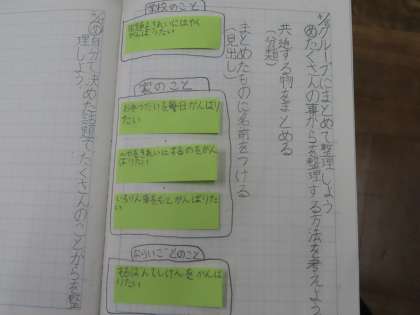 グループにまとめて整理しよう
めたくさんの事がらを整理する方法を考えよう
共通する物をまとめる
(分類)
まとめたものに名前をつける
(見出し)
学校のこと
がんばりたい
家のこと
お手つだいを毎日がんばり
たい
をきれいにするのをがん
ばりたい
をもっとがんばりた
い
ならいごとのこと
をがんば
りたい
自分で決めた話題で、たくさんのことがらを整
理しよう